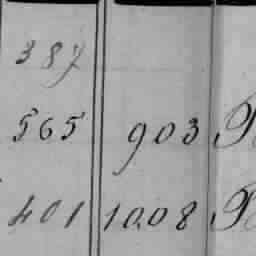 387
565 903
401 1008